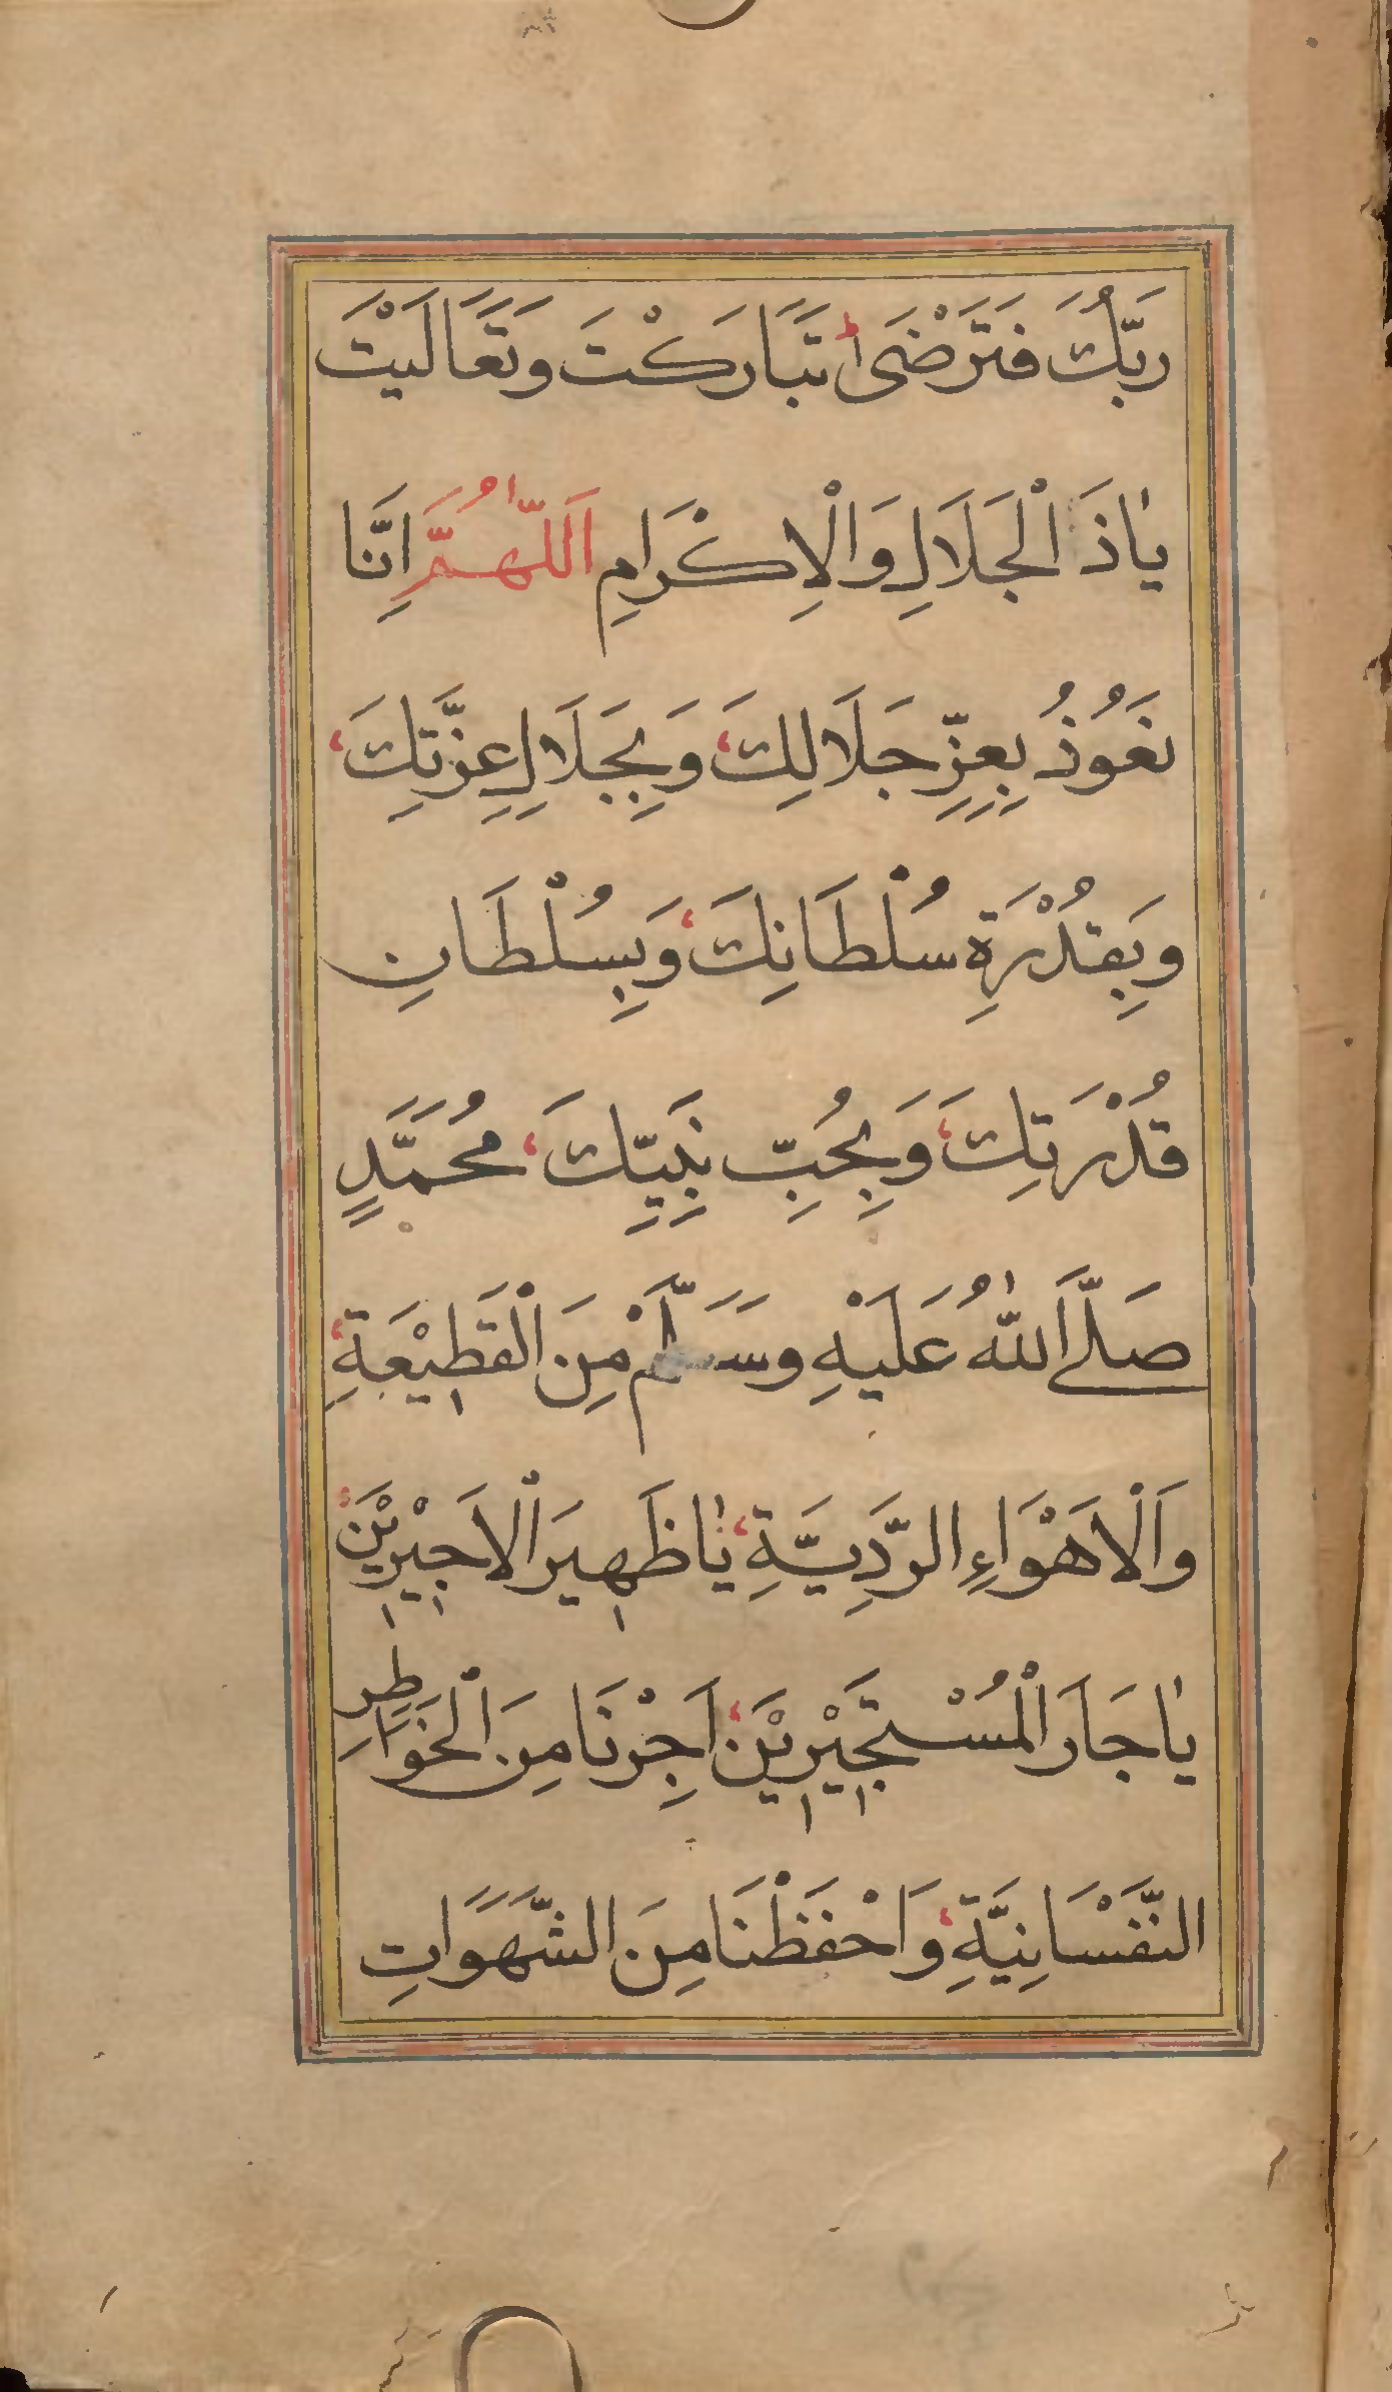 رَبُّكَ فَتَرْضَى تَبَارَكْتَ وَتَعَالَيْتَ
يَاذَ الْجَلَالِ وَالْاِكْرَامِ اَللّٰهُمَّ اِنَّا
نَعُوذُ بِعِزِّ جَلَالِكَ وَبِجَلَالِ عِزَّتِكَ
وَبِقُدْرَةِ سُلْطَانِكَ وَبِسُلْطَانِ
قُدْرَتِكَ وَبِحُبِّ نَبِيِّكَ مُحَمَّدٍ
صَلَّى اللّٰهُ عَلَيْهِ وَسَلَّمْ مِنَ الْقَطِيْعَةِ
وَالْاَهْوَاءِ الرَّدِيَّةِ يَاظَهِيرَ الْاَجِيْرِيْنَ
يَاجَارَ الْمُسْتَجِيْرِيْنَ اَجِرْنَا مِنَ الْخَوَاطِرِ
النَّفْسَانِيَّةِ وَاحْفَظْنَا مِنَ الشَّهَوَاتِ